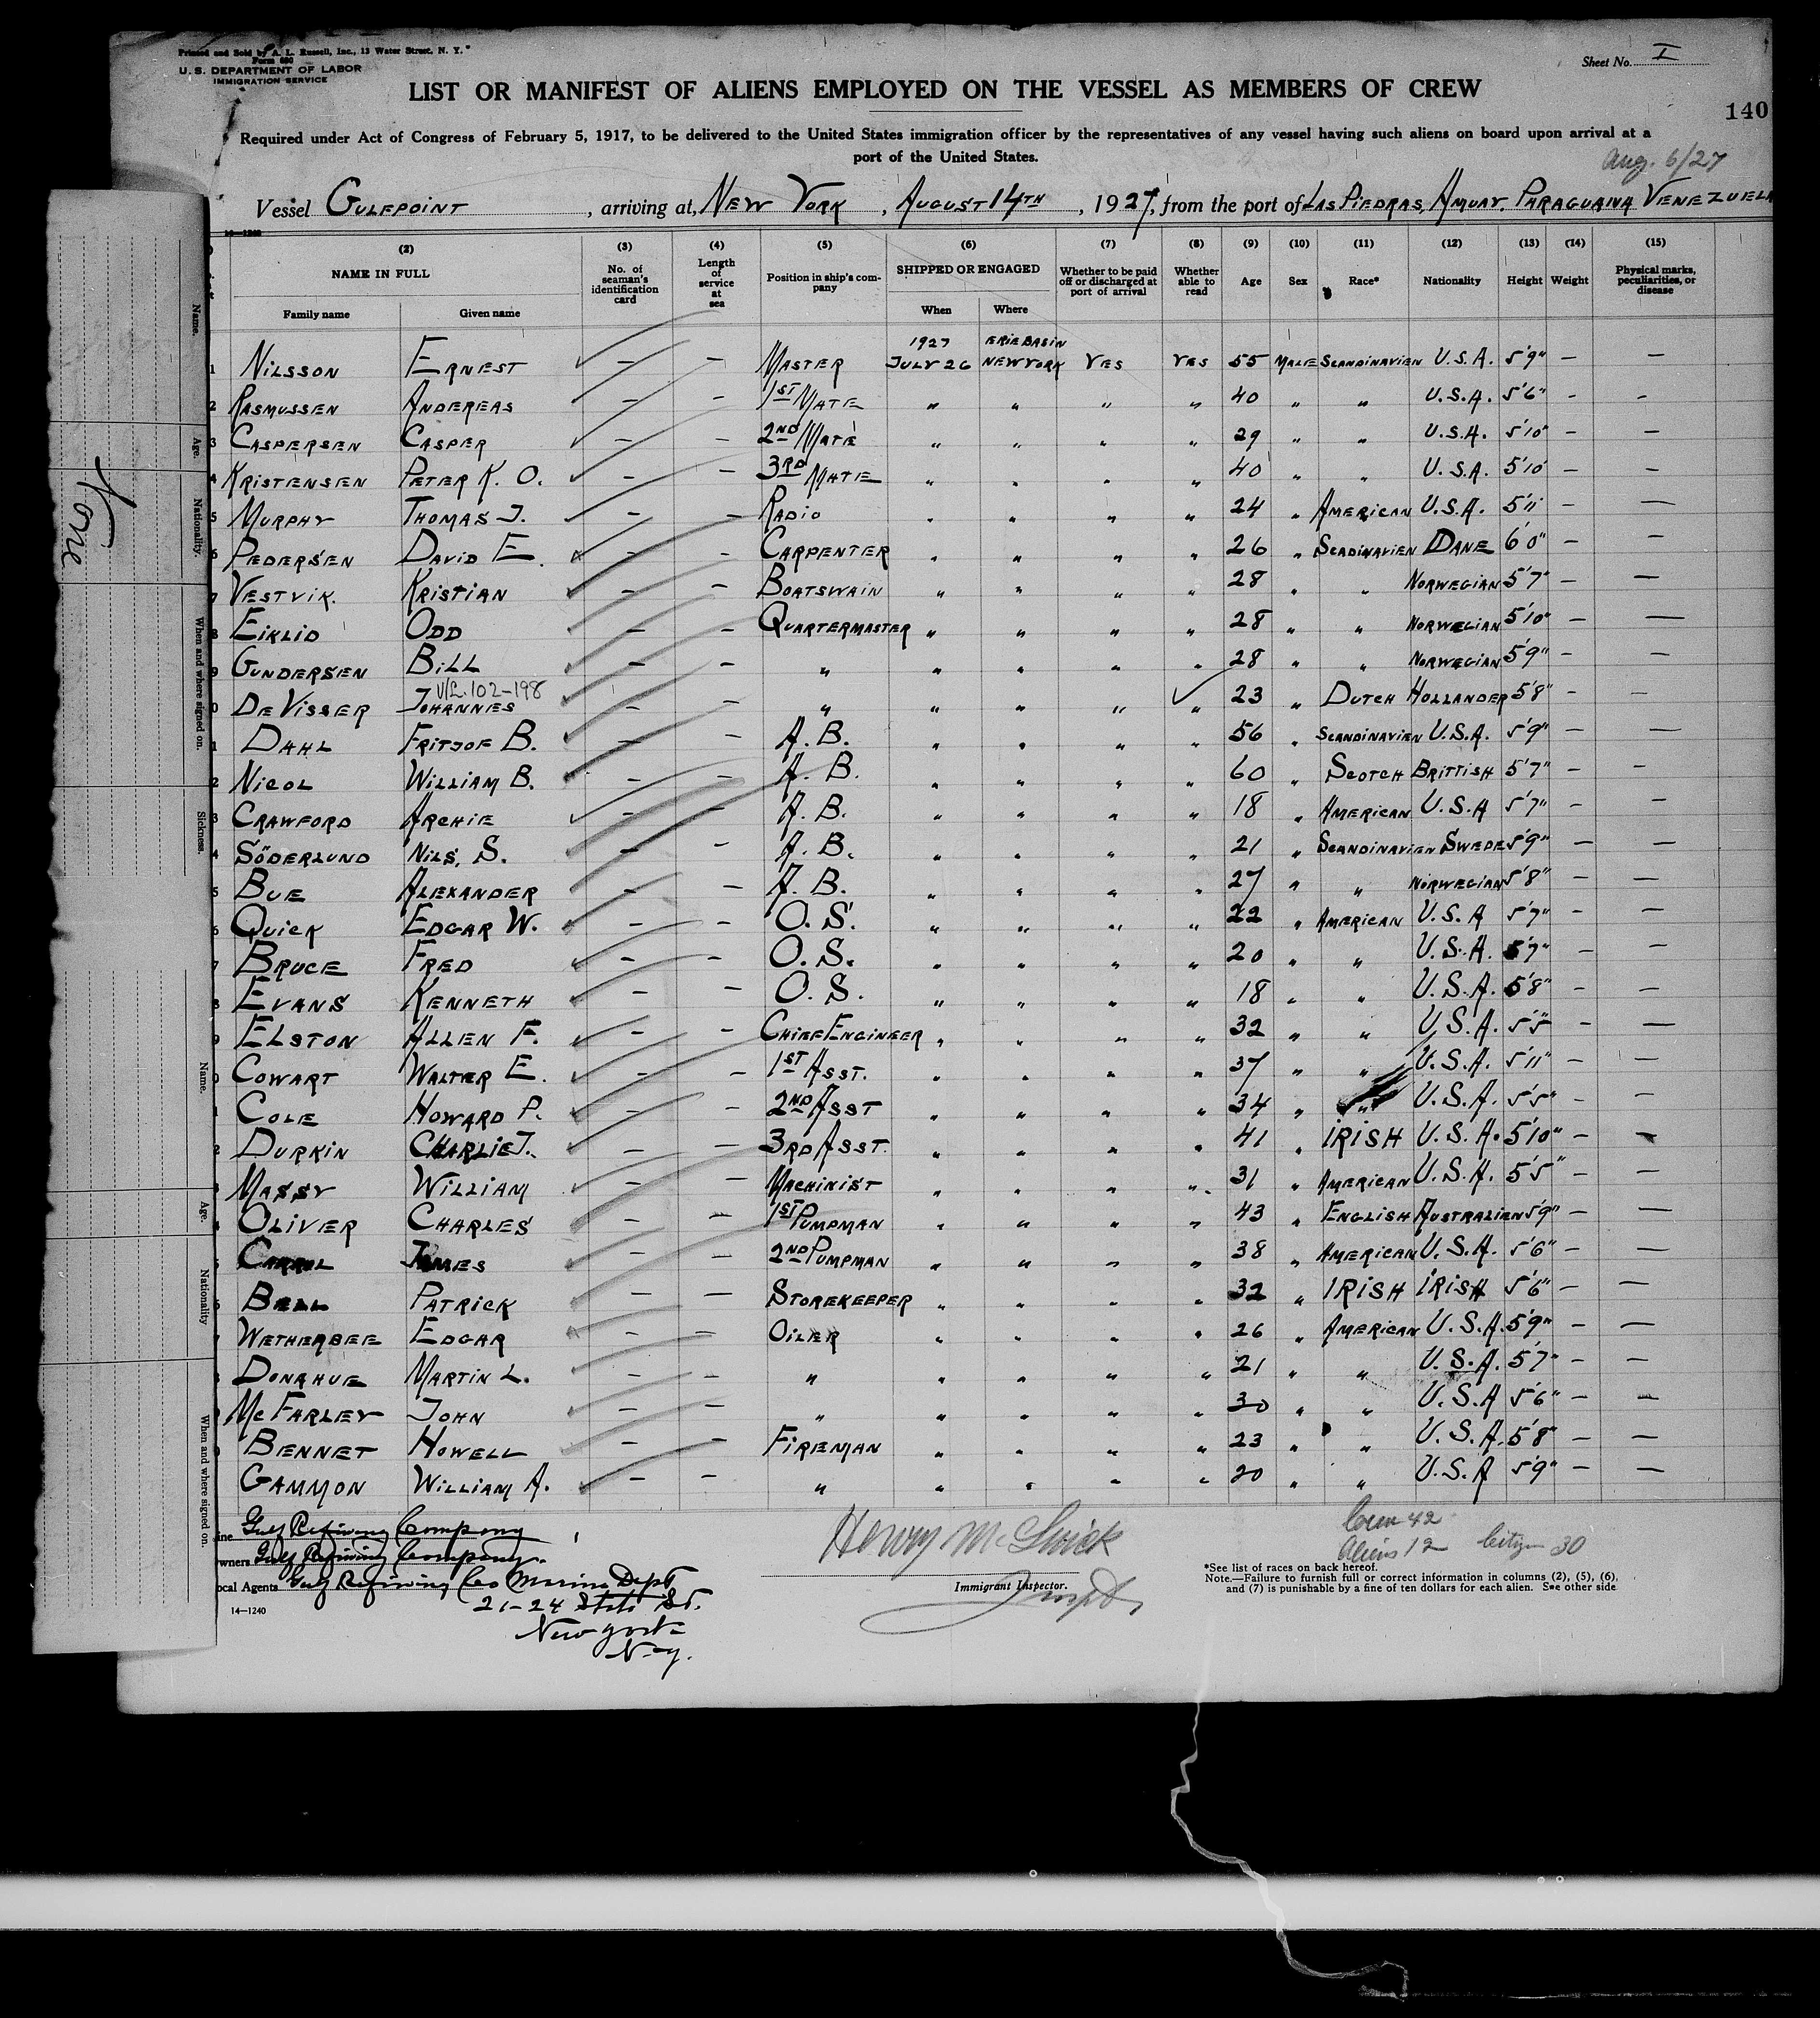 Printed and Sold by A. L. Russell, Inc., 13 Water Street, N. Y.
Form 680
U. S. DEPARTMENT OF LABOR
IMMIGRATION SERVICE
Sheet No. I
LIST OR MANIFEST OF ALIENS EMPLOYED ON THE VESSEL AS MEMBERS OF CREW
140
Required under Act of Congress of February 5, 1917, to be delivered to the United States immigration officer by the representatives of any vessel having such aliens on board upon arrival at a
port of the United States.
Aug. 6/27
Vessel GULFPOINT, arriving at, NEW YORK, AUGUST 14TH, 1927, from the port of LAS PIEDRAS, AMUAY. PARAGUANA VENEZUELA
14—1240
(2) (3) (4) (5) (6) (7) (8) (9) (10) (11) (12) (13) (14) (15)
NAME IN FULL No. of seaman's identification card Length of service at sea Position in ship's company SHIPPED OR ENGAGED Whether to be paid off or discharged at port of arrival Whether able to read Age Sex Race* Nationality Height Weight Physical marks, peculiarities, or disease
Family name Given name When Where
1927 ERIE BASIN
1 NILSSON ERNEST — — MASTER JULY 26 NEW YORK YES YES 55 MALE SCANDINAVIEN U.S.A. 5'9" — —
2 RASMUSSEN ANDEREAS — — 1ST MATE " " " " 40 " " U.S.A. 5'6" — —
3 CASPERSEN CASPER — — 2ND MATE " " " " 29 " " U.S.A. 5'10" — —
4 KRISTENSEN PETER K. O. — — 3RD MATE " " " " 40 " " U.S.A. 5'10 — —
5 MURPHY THOMAS J. — — RADIO " " " " 24 " AMERICAN U.S.A. 5'11 — —
6 PEDERSEN DAVID E. — — CARPENTER " " " " 26 " SCADINAVIEN DANE 6'0" — —
7 VESTVIK. KRISTIAN — — BOATSWAIN " " " " 28 " " NORWEGIAN 5'7" — —
8 EIKLID ODD — — QUARTERMASTER " " " " 28 " " NORWEGIAN 5'10" — —
9 GUNDERSEN BILL — — " " " " " 28 " " NORWEGIAN 5'9" — —
V/L. 102-198
0 DE VISSER JOHANNES — — " " " " " 23 " DUTCH HOLLANDER 5'8" — —
1 DAHL FRITJOF B. — — A. B. " " " " 56 " SCANDINAVIEN U.S.A. 5'9" — —
2 NICOL WILLIAM B. — — A. B. " " " " 60 " SCOTCH BRITTISH 5'7" — —
3 CRAWFORD ARCHIE — — A. B. " " " " 18 " AMERICAN U.S.A 5'7" — —
4 SÖDERLUND NILS, S. — — A. B. " " " " 21 " SCANDINAVIEN SWEDE 5'9" — —
5 BUE ALEXANDER — — A. B. " " " " 27 " " NORWEGIAN 5'8" — —
6 QUICK EDGAR W. — — O. S. " " " " 22 " AMERICAN U.S.A 5'7" — —
7 BRUCE FRED — — O. S. " " " " 20 " " U.S.A. 5'7" — —
8 EVANS KENNETH — — O. S. " " " " 18 " " U.S.A. 5'8" — —
9 ELSTON ALLEN F. — — CHIEF ENGINEER " " " " 32 " " U.S.A. 5'5" — —
0 COWART WALTER E. — — 1ST ASST. " " " " 37 " " U.S.A. 5'11" — —
1 COLE HOWARD P. — — 2ND ASST " " " " 34 " " U.S.A. 5'5" — —
2 DURKIN CHARLIE J. — — 3RD ASST. " " " " 41 " IRISH U.S.A. 5'10" — —
MASSY WILLIAM — — MACHINIST " " " " 31 " AMERICAN U.S.A. 5'5" — —
OLIVER CHARLES — — 1ST PUMPMAN " " " " 43 " ENGLISH AUSTRALIEN 5'9" — —
CARROL JAMES — — 2ND PUMPMAN " " " " 38 " AMERICAN U.S.A. 5'6" — —
BELL PATRICK — — STOREKEEPER " " " " 32 " IRISH IRISH 5'6" — —
WETHERBEE EDGAR — — OILER " " " " 26 " AMERICAN U.S.A. 5'9" — —
DONAHUE MARTIN L. — — " " " " " 21 " " U.S.A. 5'7" — —
MCFARLEY JOHN — — " " " " " 30 " " U.S.A 5'6" — —
BENNET HOWELL — — FIREMAN " " " " 23 " " U.S.A. 5'8" — —
GAMMON WILLIAM A. — — " " " " " 20 " " U.S.A 5'9" — —
ine Gulf Refining Company
wners Gulf Refining Company.
ocal Agents Gulf Refining Co Marine Dept
21-24 State St.
New York
N.Y.
14—1240
Henry
Immigrant Inspector.
Crew 42
Aliens 12 Citizen 30
*See list of races on back hereof.
Note.—Failure to furnish full or correct information in columns (2), (5), (6),
and (7) is punishable by a fine of ten dollars for each alien. See other side
Name.
Age.
Nationality.
When and where signed on.
Sickness.
None
Name.
Age.
Nationality
When and where signed on.